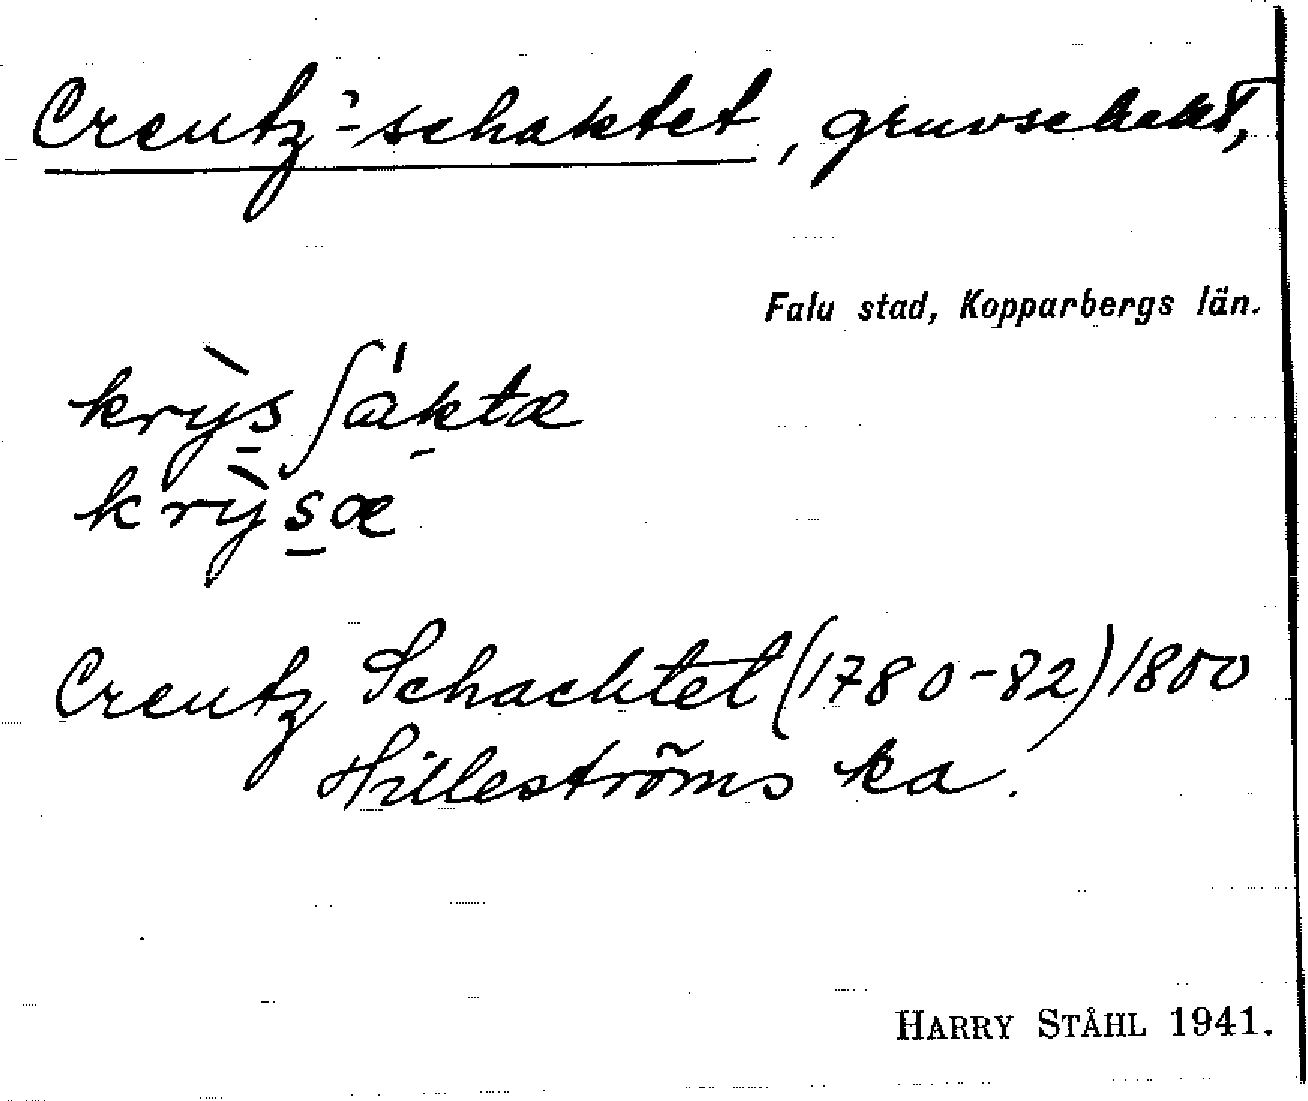 Creutz-schaktet, gruvschakt,
Falu stad, Kopparbergs län.
krỳs ʃáktæ
krỳsæ
Creutz Schachtet (1780-82) 1800
Hilleströms ka.
HARRY STÅHL 1941.